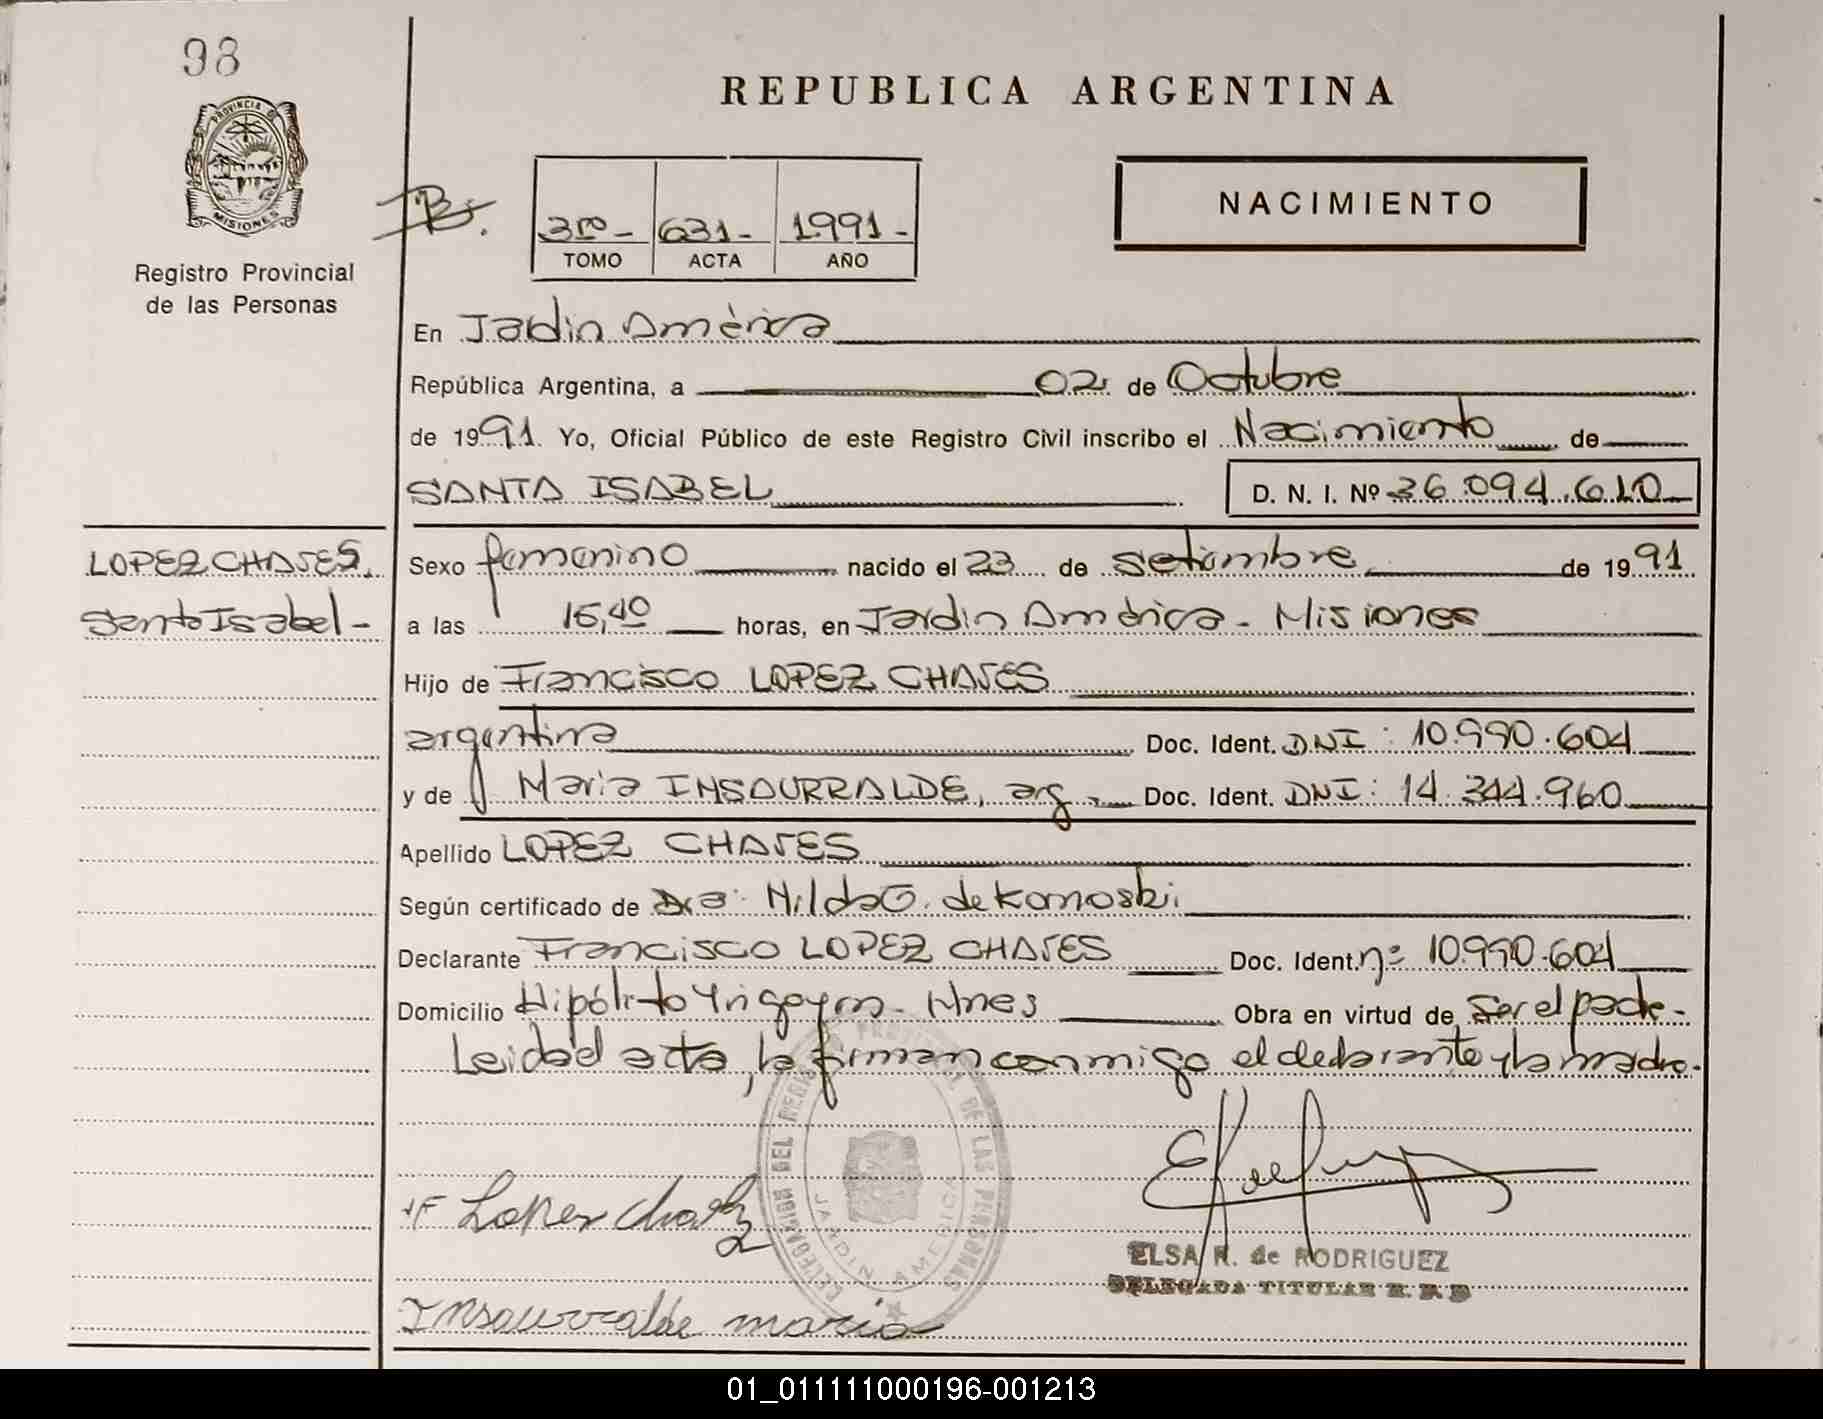 98
PROVINCIA DE
MISIONES
Registro Provincial
de las Personas
REPUBLICA ARGENTINA
NACIMIENTO
3ro - 631 - 1991 -
TOMO ACTA AÑO
En Jardín América
República Argentina, a 02 de Octubre
de 1991. Yo, Oficial Público de este Registro Civil inscribo el Nacimiento de
SANTA ISABEL D. N. I. Nº 36.094.610
LOPEZ CHAVES,
Santa Isabel -
Sexo femenino nacido el 23 de Setiembre de 1991
a las 15,40 horas, en Jardín América - Misiones
Hijo de Francisco LOPEZ CHAVES
argentina Doc. Ident. DNI: 10.990.604
y de Maria INSAURRALDE, arg. Doc. Ident. DNI: 14.344.960
Apellido LOPEZ CHAVES
Según certificado de Dra. Hilda G. de Komoski
Declarante Francisco LOPEZ CHAVES Doc. Ident. nº 10.990.604
Domicilio Hipólito Yrigoyen - Mnes Obra en virtud de Ser el padre -
Leida el acta, la firman conmigo el declarante y la madre.
DELEGACION DEL REGISTRO PROVINCIAL DE LAS PERSONAS
JARDIN AMERICA
F Lopez Chavez
ELSA R. de RODRIGUEZ
DELEGADA TITULAR R. P. P.
Insaurralde maria
01_011111000196-001213